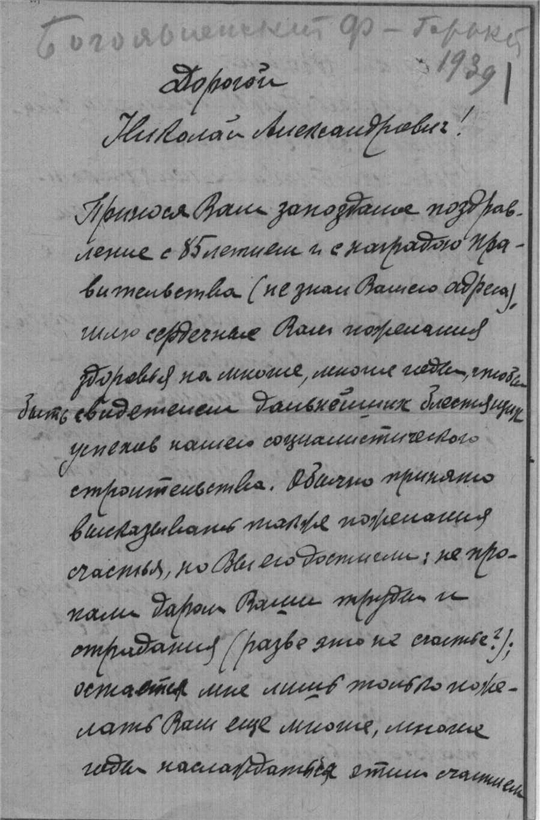 Богоявленский Ф - Горький
1939
Дорогой
Николай Александрович!
Принося Вам запоздалое поздрав-
ление с 85летием и с наградою пра-
вительства (не знал Вашего адреса),
шлю сердечные Вам пожелания
здоровья на многие, многие годы, чтобы
быть свидетелем дальнейших блестящих
успехов нашего социалистического
строительства. Обычно принято
высказывать также пожелания
счастья, но Вы его достигли: не про-
пали даром Ваши труды и
страдания (разве это не счастье?);
остается мне лишь только поже-
лать Вам еще многие, многие
годы наслаждаться этим счастием